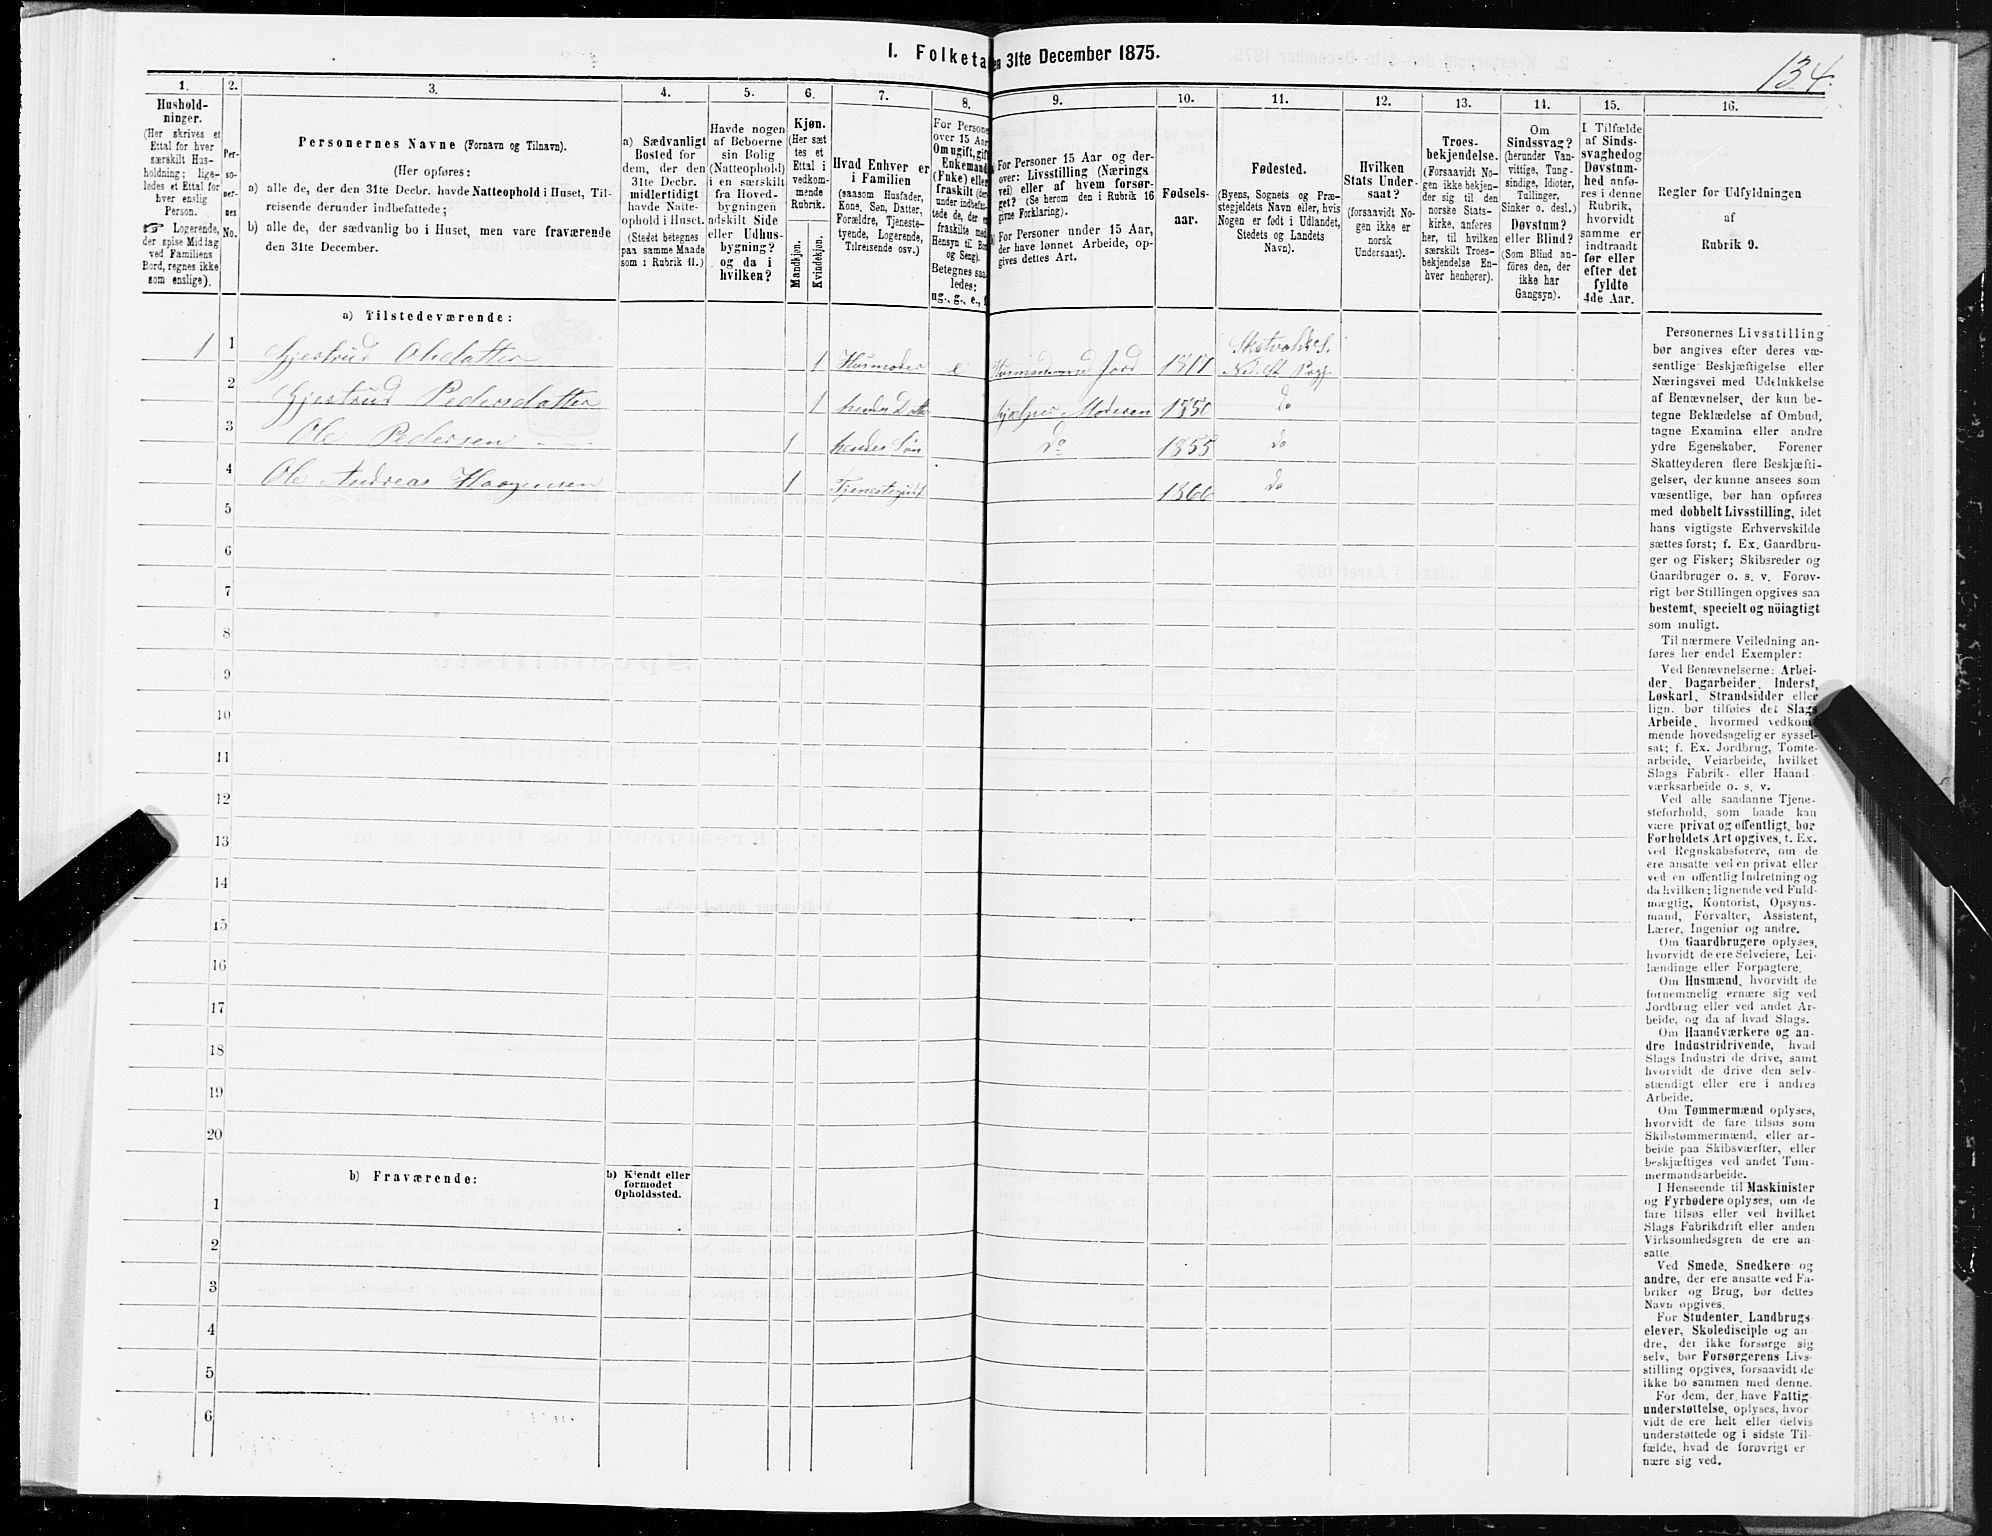 I. Folketa en 31te December 1875.
134.
1.
Hushold-
ninger.
(Her skrives et
Ettal for hver
særskilt Hus-
holdning; lige-
ledes et Ettal for
hver enslig
Person.
☞ Logerende,
der spise Middag
ved Familiens
Bord, regnes ikke
som enslige).
2.
Per-
so-
ner-
nes
No.
3.
Personernes Navne (Fornavn og Tilnavn).
(Her opføres:
a) alle de, der den 31te Decbr. havde Natteophold i Huset, Til-
reisende derunder indbefattede;
b) alle de, der sædvanlig bo i Huset, men vare fraværende
den 31te December.
4.
a) Sædvanligt
Bosted for
dem, der den
31te Decbr.
midlertidigt
havde Natte-
ophold i Huset.
(Stedet betegnes
paa samme Maade
som i Rubrik 11.)
5.
Havde nogen
af Beboerne
sin Bolig
(Natteophold)
i en særskilt
fra Hoved-
bygningen
adskilt Side
eller Udhus-
bygning?
og da i
hvilken?
6.
Kjøn.
(Her sæt
tes et
Ettal i
vedkom-
mende
Rubrik.
Mandkjøn.
Kvindekjøn.
7.
Hvad Enhver er
i Familien
(saasom Husfader,
Kone, Søn, Datter,
Forældre, Tjeneste-
tyende, Logerende,
Tilreisende osv.)
8.
For Persone
over 15 Aar
Om ugift, gift
Enkemand
(Enke) eller
fraskilt (der
under indbefat
tede de, der e
fraskilte med
Hensyn til Bor
og Seng).
Betegnes saa
ledes:
ug., g., e., f
9.
For Personer 15 Aar og der-
over: Livsstilling (Nærings
vei) eller af hvem forsør-
get? (Se herom den i Rubrik 16
givne Forklaring).
For Personer under 15 Aar,
der have lønnet Arbeide, op-
gives dettes Art.
10.
Fødsels-
aar.
11.
Fødested.
(Byens, Sognets og Præ-
stegjeldets Navn eller, hvis
Nogen er født i Udlandet,
Stedets og Landets
Navn).
12.
Hvilken
Stats Under-
saat?
(forsaavidt No-
gen ikke er
norsk
Undersaat).
13.
Troes-
bekjendelse.
(Forsaavidt No-
gen ikke bekjen-
der sig til den
norske Stats-
kirke, anføres
her, til hvilken
særskilt Troes-
bekjendelse En-
hver henhører).
14.
Om
Sindssvag?
(herunder Van-
vittige, Tung-
sindige, Idioter,
Tullinger,
Sinker o. desl.)
Døvstum?
eller Blind?
(Som Blind an-
føres den, der
ikke har
Gangsyn).
15.
I Tilfælde
af Sinds-
svaghed og
Døvstum-
hed anfø-
res i denne
Rubrik,
hvorvidt
samme er
indtraadt
før eller
efter det
fyldte
4de Aar.
16.
Regler for Udfyldningen
af
Rubrik 9.
a) Tilstedeværende:
1 1 Gjertrud Olsdatter 1 Husmoder e Husmand med Jord 1811 Skatvold S. Ned. St Prgj
2 Gjertrud Pedersdatter 1 hendes Datter hjelper Moderen 1850 do
3 Ole Pedersen 1 hendes Søn Do 1855 do
4 Ole Andreas Haagensen 1 Tjenestegut 1860 do
5
6
7
8
9
10
11
12
13
14
15
16
17
18
19
20
b) Fraværende:
b) Kjendt eller
formodet
Opholdssted.
1
2
3
4
5
6
Personernes Livsstilling
bør angives efter deres væ-
sentlige Beskjæftigelse eller
Næringsvei med Udelukkelse
af Benævnelser, der kun be-
tegne Beklædelse af Ombud,
tagne Examina eller andre
ydre Egenskaber. Forener
Skatteyderen flere Beskjæfti-
gelser, der kunne ansees som
væsentlige, bør han opføres
med dobbelt Livsstilling, idet
hans vigtigste Erhvervskilde
sættes først; f. Ex. Gaardbru-
ger og Fisker; Skibsreder og
Gaardbruger o. s. v. Forøv-
rigt bør Stillingen opgives saa
bestemt, specielt og nöiagtigt
som muligt.
Til nærmere Veiledning an-
føres her endel Exempler:
Ved Benævnelserne: Arbei-
der, Dagarbeider, Inderst,
Løskarl, Strandsidder eller
lign. bør tilføies det Slags
Arbeide, hvormed vedkom-
mende hovedsagelig er syssel-
sat; f. Ex. Jordbrug, Tomte-
arbeide, Veiarbeide, hvilket
Slags Fabrik- eller Haand-
værksarbeide o. s. v.
Ved alle saadanne Tjene-
steforhold, som baade kan
være privat og offentligt, bør
Forholdets Art opgives, f. Ex.
ved Regnskabsførere, om de
ere ansatte ved en privat eller
ved en offentlig Indretning og
da hvilken; lignende ved Fuld-
mægtig, Kontorist, Opsyns-
mand, Forvalter, Assistent,
Lærer, Ingeniør og andre.
Om Gaardbrugere oplyses,
hvorvidt de ere Selveiere, Lei-
lændinge eller Forpagtere.
Om Husmænd, hvorvidt de
fornemmelig ernære sig ved
Jordbrug eller ved andet Ar-
beide, og da af hvad Slags.
Om Haandværkere og an-
dre Industridrivende, hvad
Slags Industri de drive, samt
hvorvidt de drive den selv-
stændigt eller ere i andres
Arbeide.
Om Tømmermænd oplyses,
hvorvidt de fare tilsøs som
Skibstømmermænd, eller ar-
beide paa Skibsværfter, eller
beskjæftiges ved andet Tøm-
mermandsarbeide.
I Henseende til Maskinister
og Fyrbødere oplyses, om de
fare tilsøs eller ved hvilket
Slags Fabrikdrift eller anden
Virksomhedsgren de ere an-
satte.
Ved Smede, Snedkere og
andre, der ere ansatte ved Fa-
briker og Brug, bør dettes
Navn opgives.
For Studenter, Landbrugs-
elever, Skoledisciple og an-
dre, der ikke forsørge sig
selv, bør Forsørgerens Livs-
stilling opgives, forsaavidt de
ikke bo sammen med denne.
For dem, der have Fattig-
understøttelse, oplyses, hvor-
vidt de ere helt eller delvis
understøttede og i sidste Til-
fælde, hvad de forøvrigt er-
nære sig ved.